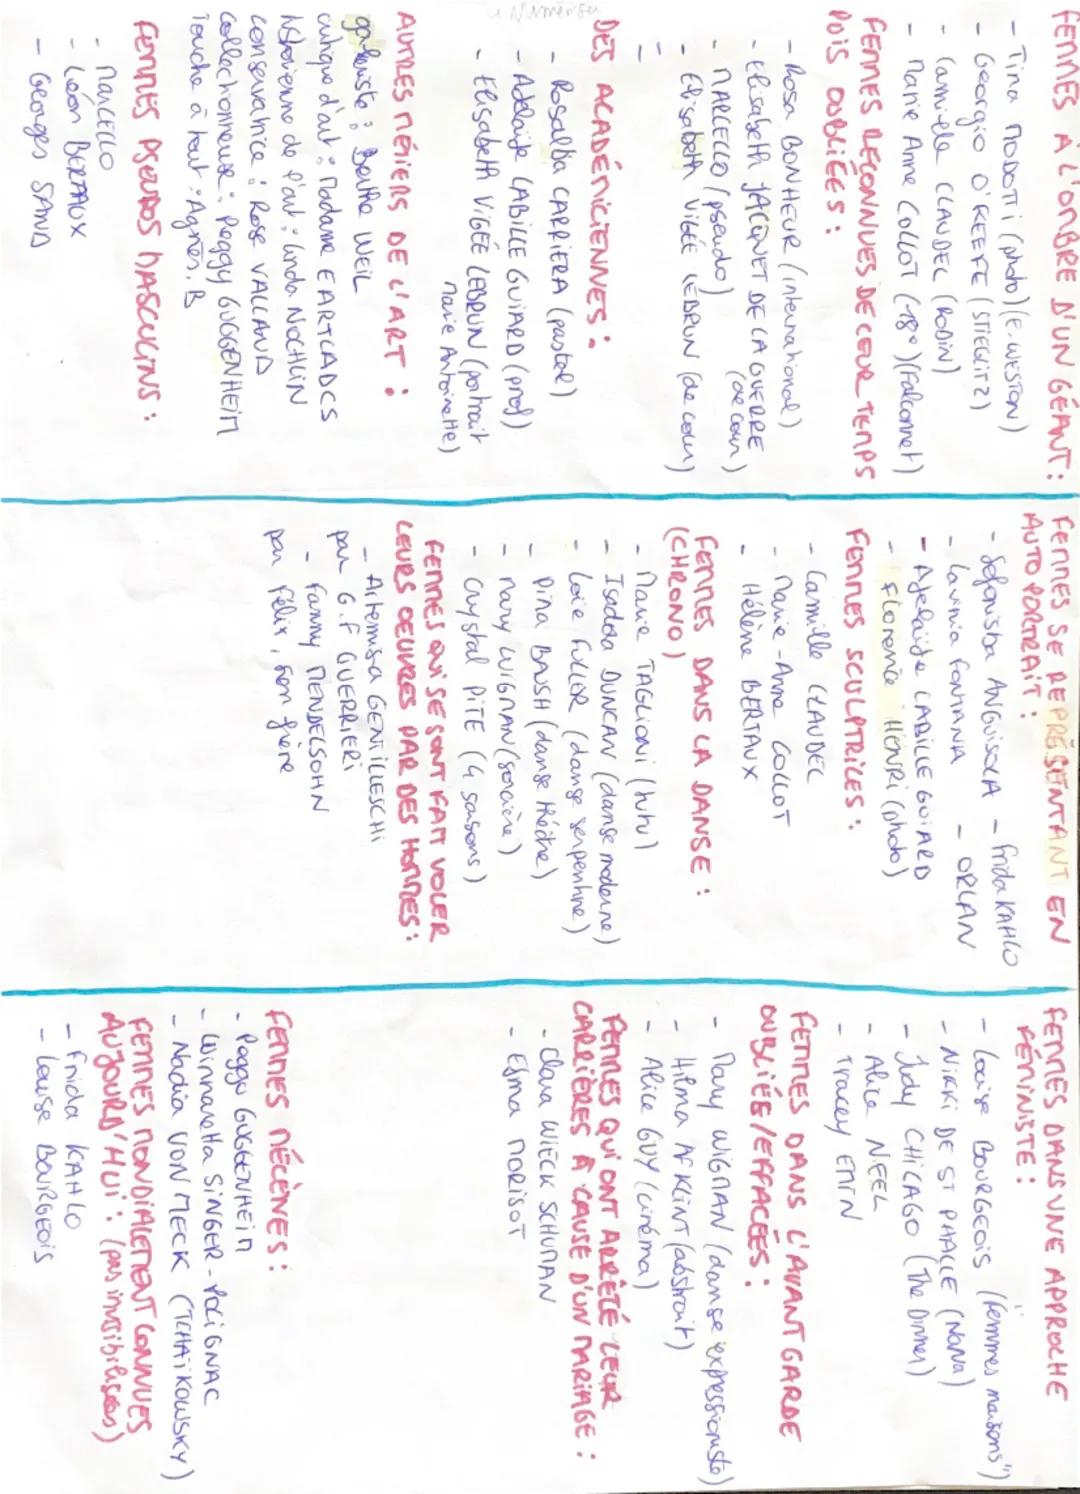 FEMMES À L'OMBRE D'UN GÉANT :
- Tina MODOTTI (photo) (E. WESTON)
- Georgio O'KEEFE (STIEGLITZ)
- Camille CLAUDEL (RODIN)
- Marie Anne COLLOT (18e) (Falconnet)
FEMMES RECONNUES DE LEUR TEMPS
PUIS OUBLIÉES :
- Rosa BONHEUR (international)
- Elisabeth JACQUET DE LA GUERRE
(de cour)
- MARCELLO (pseudo)
- Elisabeth VIGÉE LEBRUN (de cour)
-
-
DES ACADÉMICIENNES :
- Rosalba CARRIERA (pastel)
- Adelaïde LABILLE GUIARD (prof)
- Elisabeth VIGÉE LEBRUN (portrait
Marie Antoinette)
AUTRES MÉTIERS DE L'ART :
galeriste : Berthe WEIL
critique d'art : Madame E ARTLADCS
historienne de l'art : Linda NOCHLIN
conservatrice : Rose VALLAND
collectionneuse : Peggy GUGGENHEIM
Touche à tout : Agnès. B
FEMMES PSEUDOS MASCULINS :
- MARCELLO
- Léon BERTAUX
- Georges SAND
FEMMES SE REPRÉSENTANT EN
AUTO PORTRAIT :
- Sofonisba ANGUISOLA - Frida KAHLO
- Lavinia FONTANA - ORLAN
- Adelaïde LABILLE GUIARD
- Florence HENRI (photo)
FEMMES SCULPTRICES :
- Camille CLAUDEL
- Marie-Anne COLLOT
- Hélène BERTAUX
FEMMES DANS LA DANSE :
(CHRONO)
- Marie TAGLIONI (tutu)
- Isadora DUNCAN (danse moderne)
- Loïe FULLER (danse serpentine)
- Pina BAUSH (danse théâtre)
- Mary WIGMAN (sorcière)
- Crystal PITE (4 saisons)
FEMMES QUI SE SONT FAIT VOLER
LEURS OEUVRES PAR DES HOMMES :
- Artemisia GENTILLESCHI
par G.F GUERRIERI
- Fanny MENDELSOHN
par Félix, son frère
FEMMES DANS UNE APPROCHE
FÉMINISTE :
- Louise BOURGEOIS ("femmes maisons")
- NIKKI DE ST PHALLE (NANA)
- Judy CHICAGO (The Dinner)
- Alice NEEL
- Tracey EMIN
FEMMES DANS L'AVANT GARDE
OUBLIÉS/EFFACÉES :
- Mary WIGMAN (danse expressionniste)
- Hilma AF KLINT (abstrait)
- Alice GUY (cinéma)
FEMMES QUI ONT ARRÊTÉ LEUR
CARRIÈRES À CAUSE D'UN MARIAGE :
- Clara WIECK SCHUMAN
- Edma MORISOT
FEMMES MÉCÈNES :
- Peggy GUGGENHEIM
- Winnaretta SINGER-POLIGNAC
- Nadia VON MECK (TCHAÏKOWSKY)
FEMMES MONDIALEMENT CONNUES
AUJOURD'HUI : (pas invisibilisées)
- Frida KAHLO
- Louise BOURGEOIS